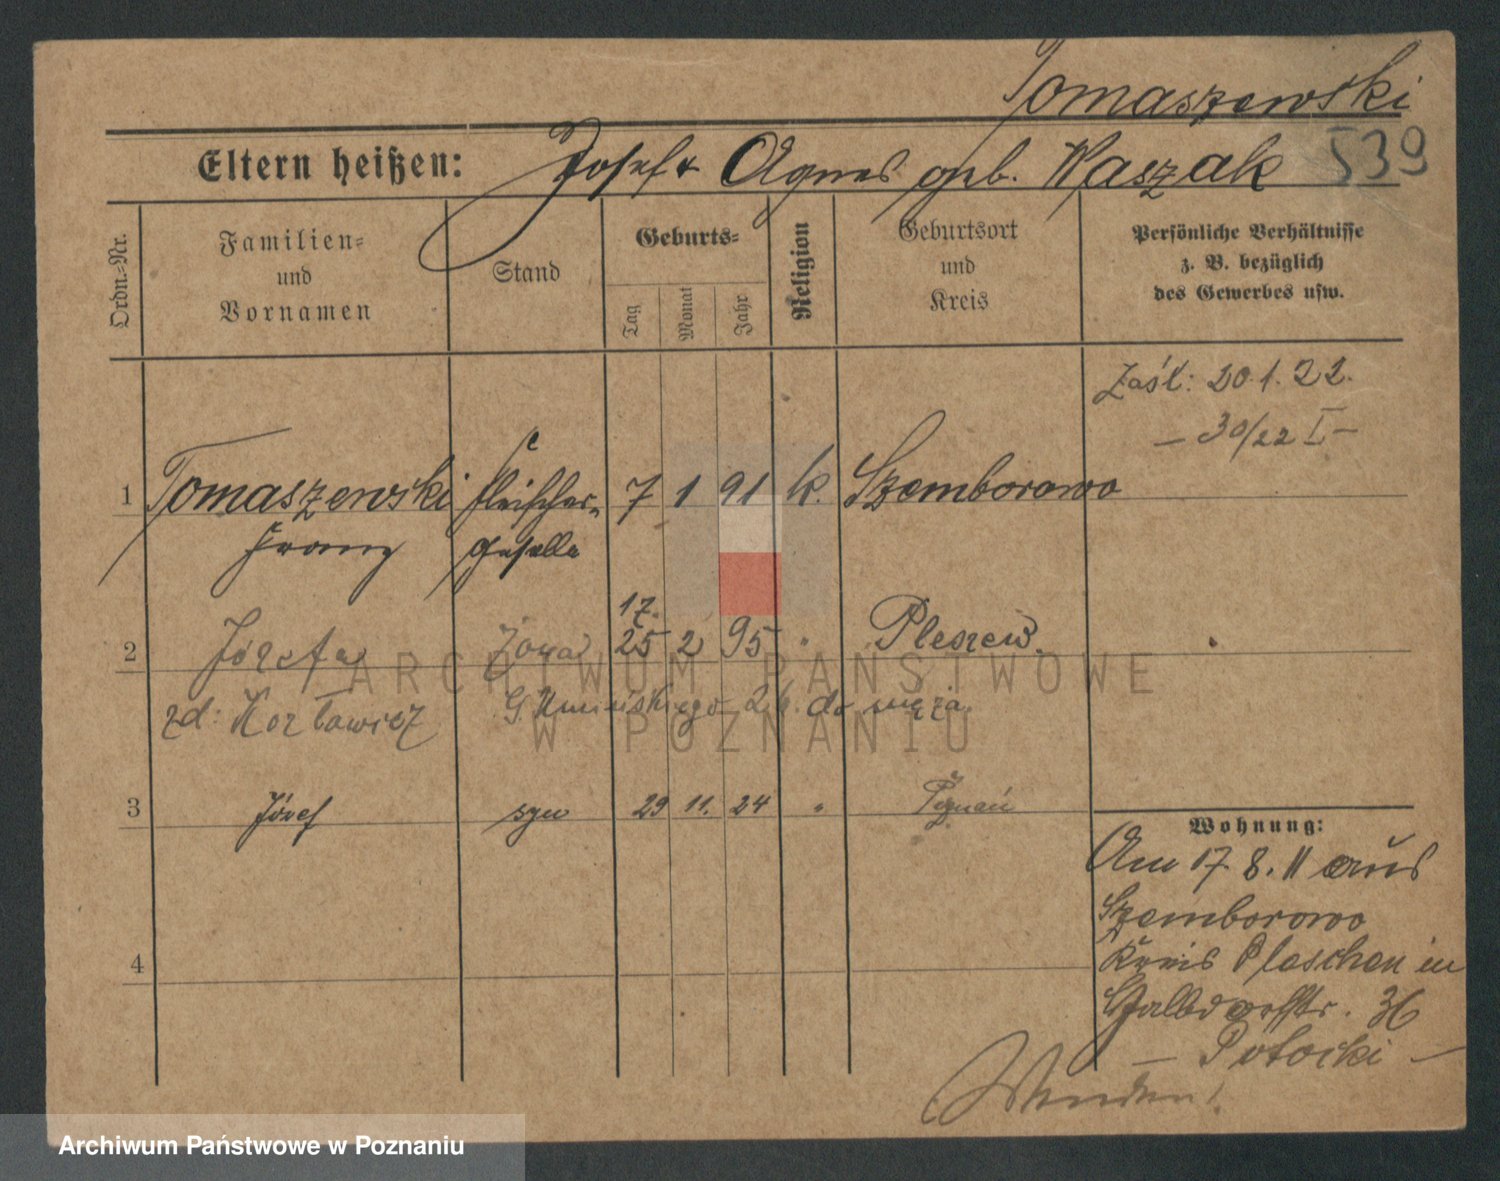 Tomaszewski
539
Eltern heißen: Josef & Agnes geb. Waszak
Ordn.-Nr.
Familien-
und
Vornamen
Stand
Geburts-
Tag
Monat
Jahr
Religion
Geburtsort
und
Kreis
Persönliche Verhältnisse
z. B. bezüglich
des Gewerbes usw.
Zaśl: 20.1.22.
— 30/22 I —
1 Tomaszewski Fleischer- 7 1 91 k. Szemborowo
Franz geselle
17.
2 Józefa żona 25 2 95 " Pleszew.
zd: Kozłowicz G. Umińskiego 26. do męża.
3 Józef syn 29 11. 24 " Poznań
4
Wohnung:
Am 17. 8. 11 aus
Szemborowo
Kreis Pleschen in
36
— Potocki —
Wenden!
ARCHIWUM PAŃSTWOWE
W POZNANIU
Archiwum Państwowe w Poznaniu